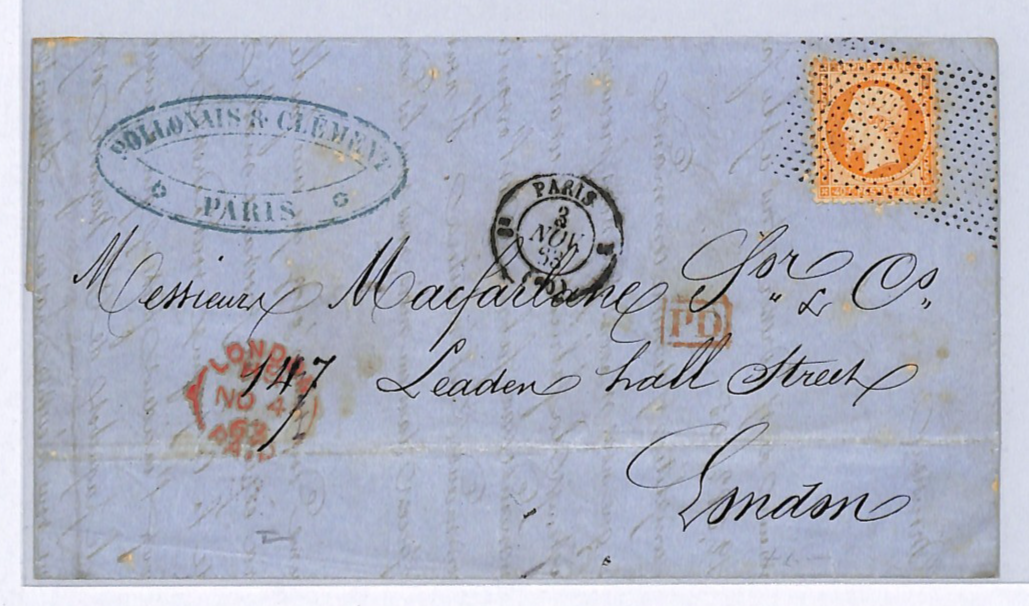 POLLONAIS & CLÉMENT
PARIS
PARIS
3
NOV
63
Messieurs Macfarlane Jor & Co
PD
147 Leaden hall Street
LONDON
NO 4
63
PAID
London